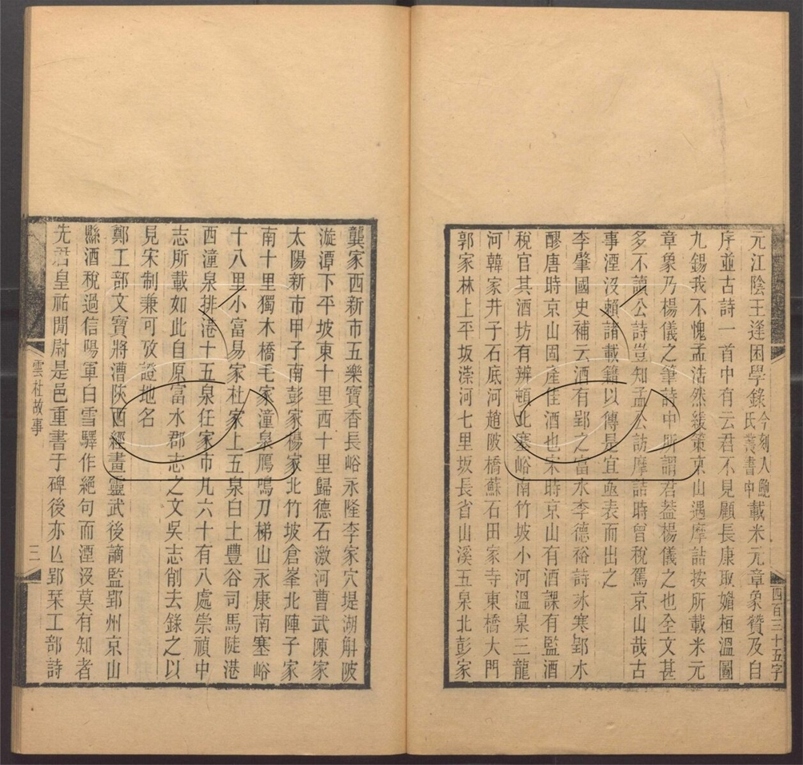 元江陰王逢困學錄今刻入鮑氏叢書中載米元章象贊及自
序並古詩一首中有云君不見顧長康取嬪桓溫圖
九錫我不愧孟浩然緩策京山遇摩詰按所載米元
章象乃楊儀之筆詩中所謂君葢楊儀之也全文甚
多不讀公詩豈知孟公訪摩詰時曾稅駕京山哉古
事湮沒賴諸載籍以傳是宜亟表而出之
李肇國史補云酒有郢之富水李德裕詩冰寒郢水
醪唐時京山固產佳酒也宋時京山有酒課有監酒
稅官其酒坊有辨頓北塞峪南竹坡小河溫泉三龍
河韓家井于石底河趙陂橋蘇石田家寺東橋大門
郭家林上平坂漴河七里坂長省山溪五泉北彭家
四百三十五字
龔家西新市五樂寶香長峪永隆李家穴堤湖斛陂
漩潭下平坡東十里西十里歸德石激河曹武陳家
太陽新市甲子南彭家楊家北竹坡倉峯北陣子家
南十里獨木橋毛家潼泉鴈鳴刀梯山永康南塞峪
十八里小富易家杜家上五泉白土豐谷司馬陡港
西潼泉排港十五泉任家市凡六十有八處崇禎中
志所載如此自原富水郡志之文吳志削去錄之以
見宋制兼可攷證地名
鄭工部文寶將漕陝西經畫靈武後謫監郢州京山
縣酒稅過信陽軍白雪驛作絕句而湮沒莫有知者
先君皇祐閒尉是邑重書于碑後亦亾郢琹工部詩
雲杜故事
三